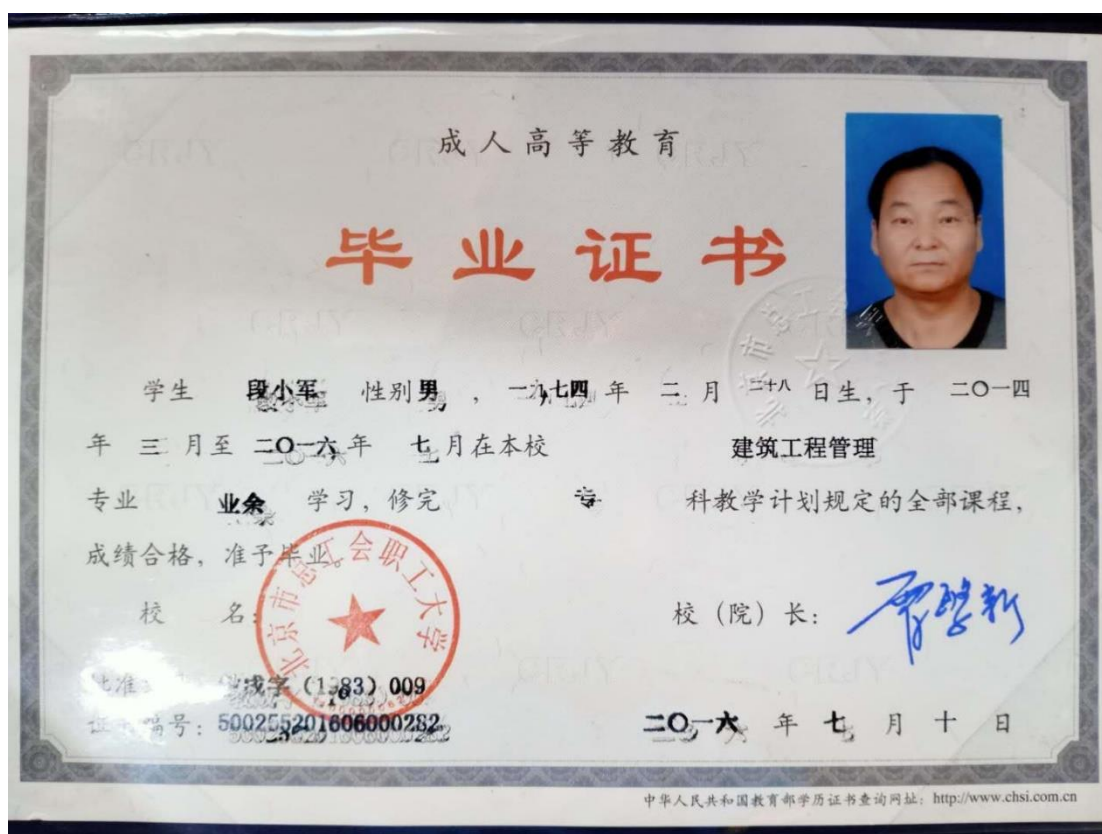 成人高等教育
毕业证书
学生 段小军 性别 男 ， 一九七四 年 二 月 二十八 日生，于 二〇一四
年 三 月至 二〇一六 年 七 月在本校 建筑工程管理
专业 业余 学习，修完 专 科教学计划规定的全部课程，
成绩合格，准予毕业。
北京市总工会职工大学
校 名： 校（院）长：
成字（1983）009
证书编号：500255201606000282
二〇一六 年 七 月 十 日
中华人民共和国教育部学历证书查询网址：http://www.chsi.com.cn